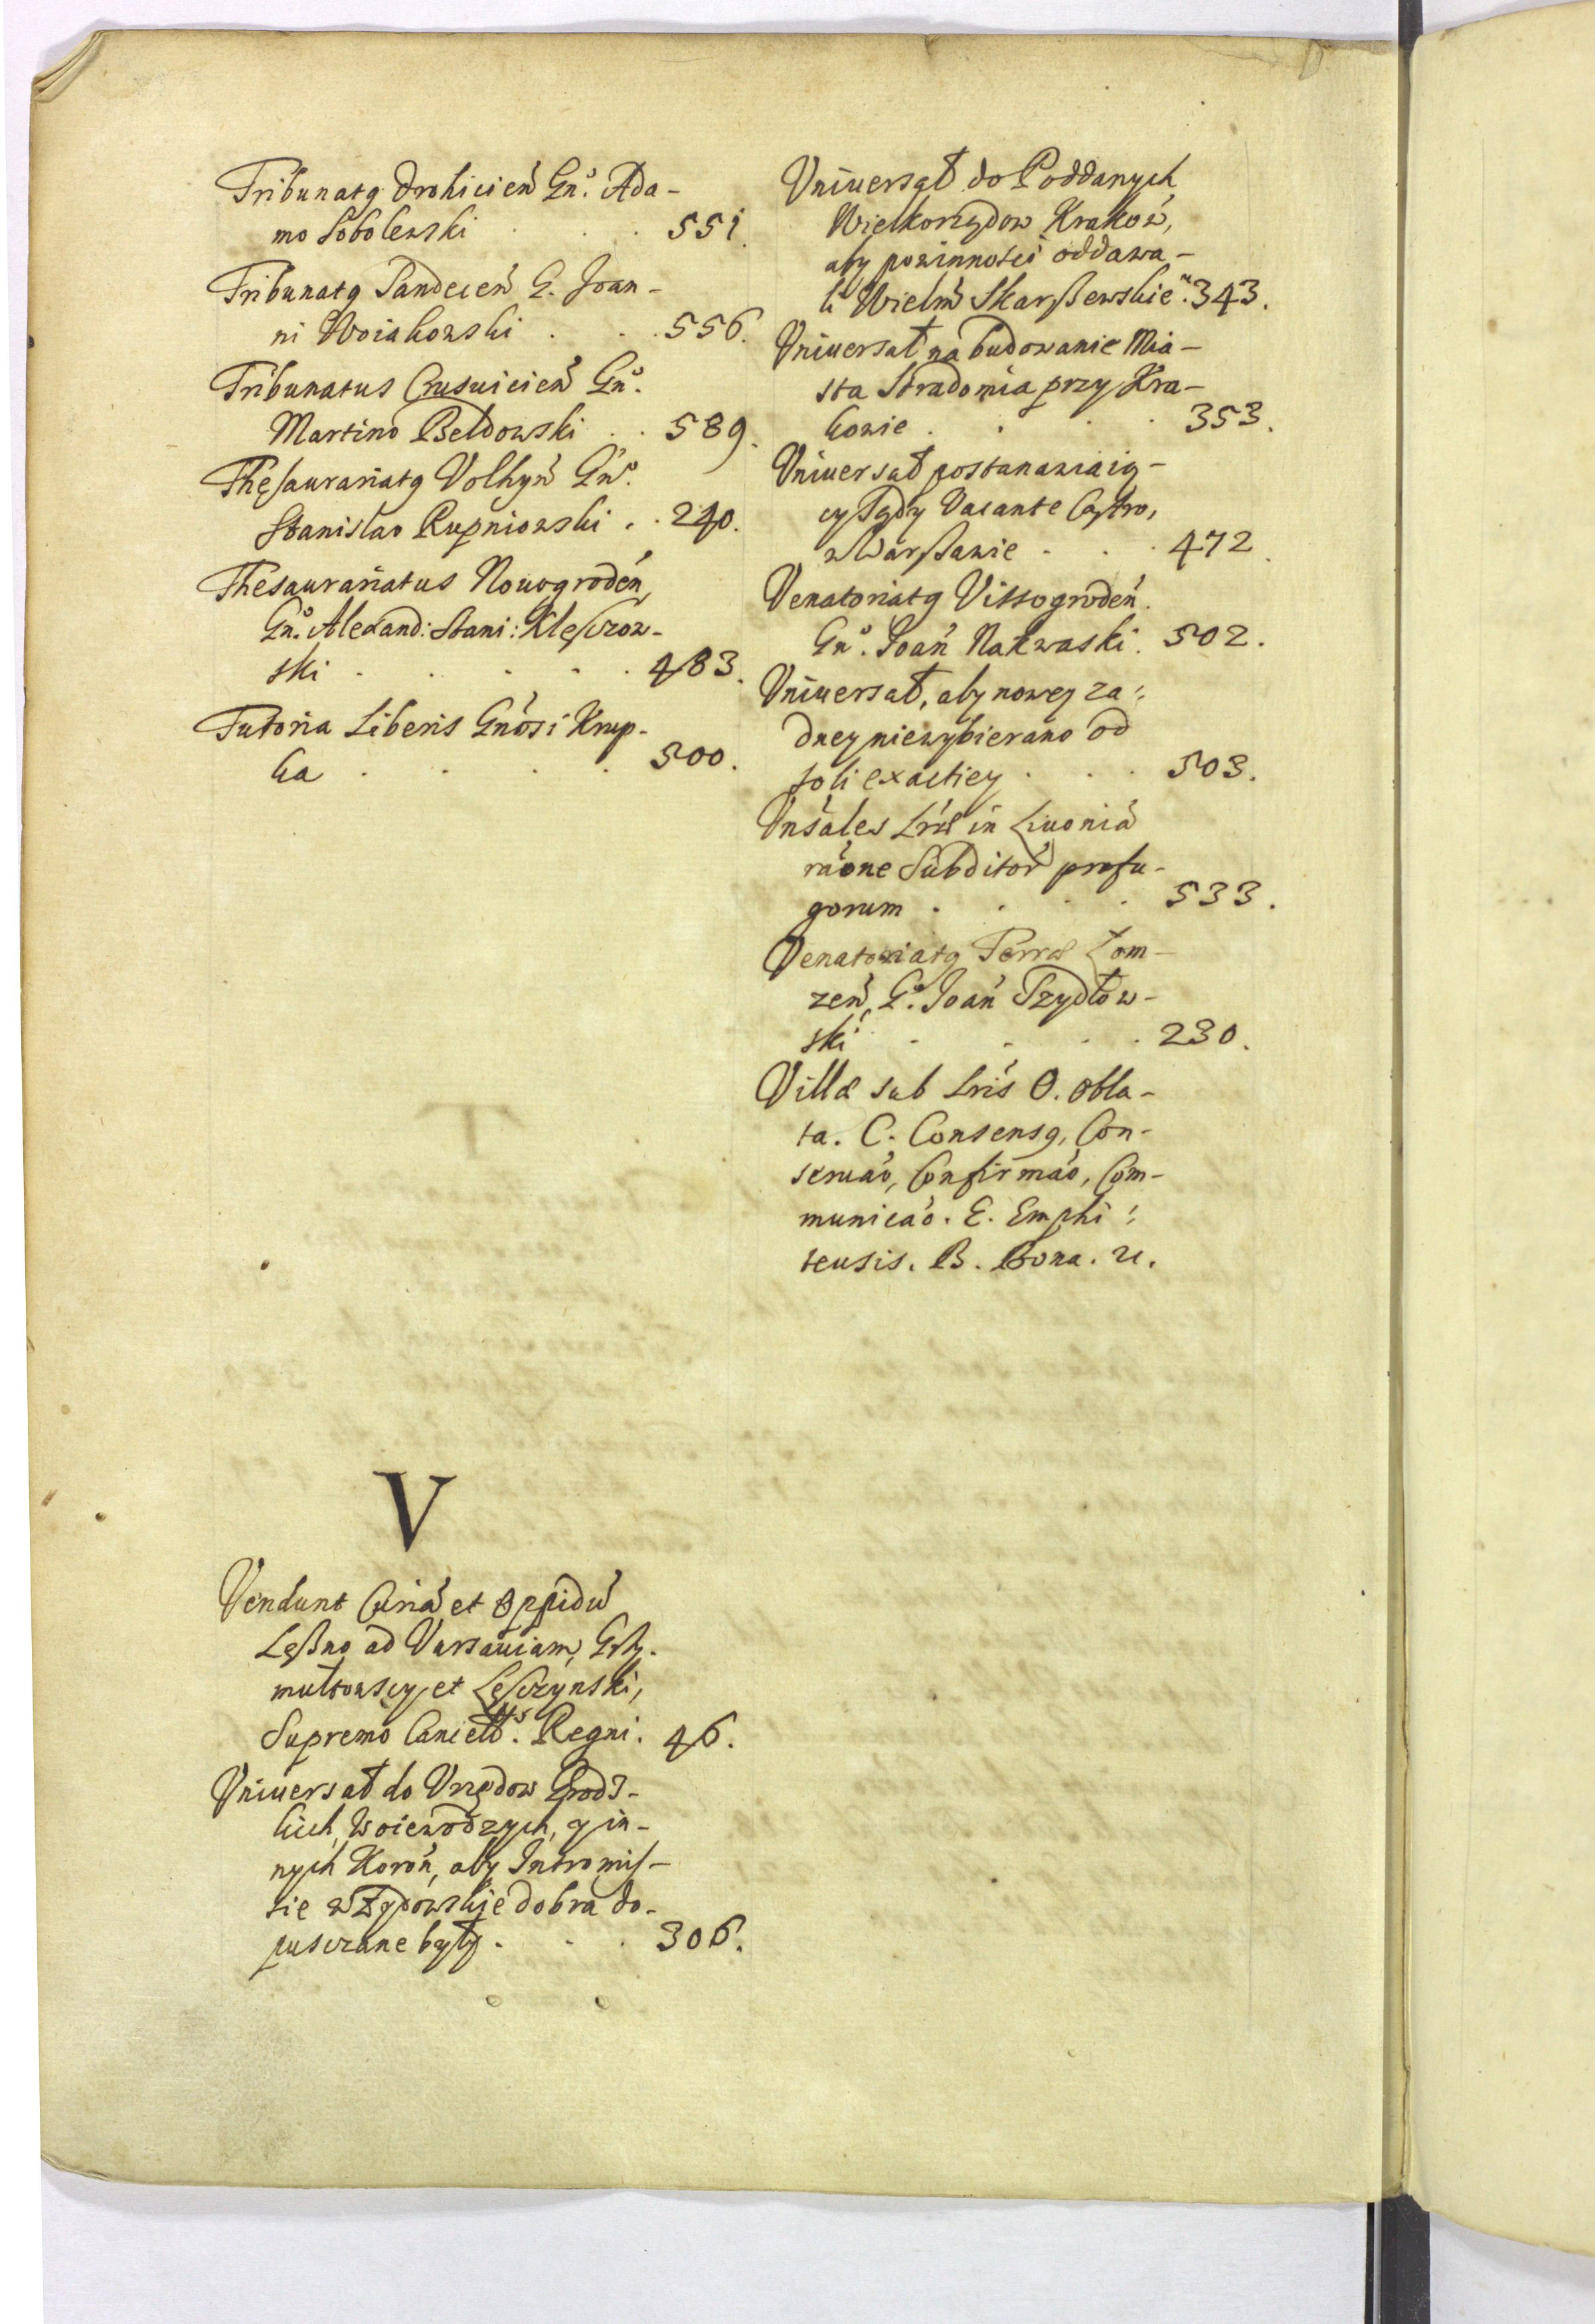 Tribunatq Drohicień Gn͠o. Ada-
mo Sobolewski . . . 551.
Tribunatq Sandeceń G. Joan-
ni Woiakowski . . . 556.
Tribunatus Crusuicień Gn͠o.
Martino Bełdowski . . 589.
Thesaurariatq Volhyń Gn͠o.
Stanislao Rupniowski . . 240.
Thesaurariatus Nouogrodeń,
Gn͠o. Alexand: Stani: Kleszow-
ski . . . . . 483.
Tutoria Liberis Gnosi Krup-
ka . . . . 500.
V
Vendunt Curiá et Oppidú
Leßno ad Varsauiam, Grzy-
mułtowscy, et Leszczynski,
Supremo Canclło. Regni. 46.
Vniuersał do Vrzędow Grodz-
kich, Woiewodzych, y in-
nych Koroń, aby Intromis-
sie w Zypowskie dobra do-
pusczane były . . . 306.
Vniuersał do Poddanych
Wielkorządow Krakow,
aby powinności oddawa-
li Wielm Skarßewskie͠u. 343.
Vniuersał na budowanie Mia-
sta Stradomia przy Kra-
kowie . . . . 353.
Vniuersał postanawiaią-
cy Sądy Vacante Castro,
w Warßawie . . . 472.
Venatoriatq Vissogrodeń.
Gn͠o. Joań Nakwaski. 502.
Vniuersał, aby nowey ża:
dney niewybierano od
soli exactiey . . . 503.
Vnsales Lræ in Liuoniá
raóne Subditoŕ profu-
gorum . . . . 533.
Venatoriatq Terræ Łom-
zeń, G͠o. Joań Szydłow-
ski . . . . 230.
Villæ sub Lris O. obla-
ta. C. Consensq, Con-
seruaó, Confirmaó, Com-
municaó. E. Emphi:
teusis. B. Bona. &.